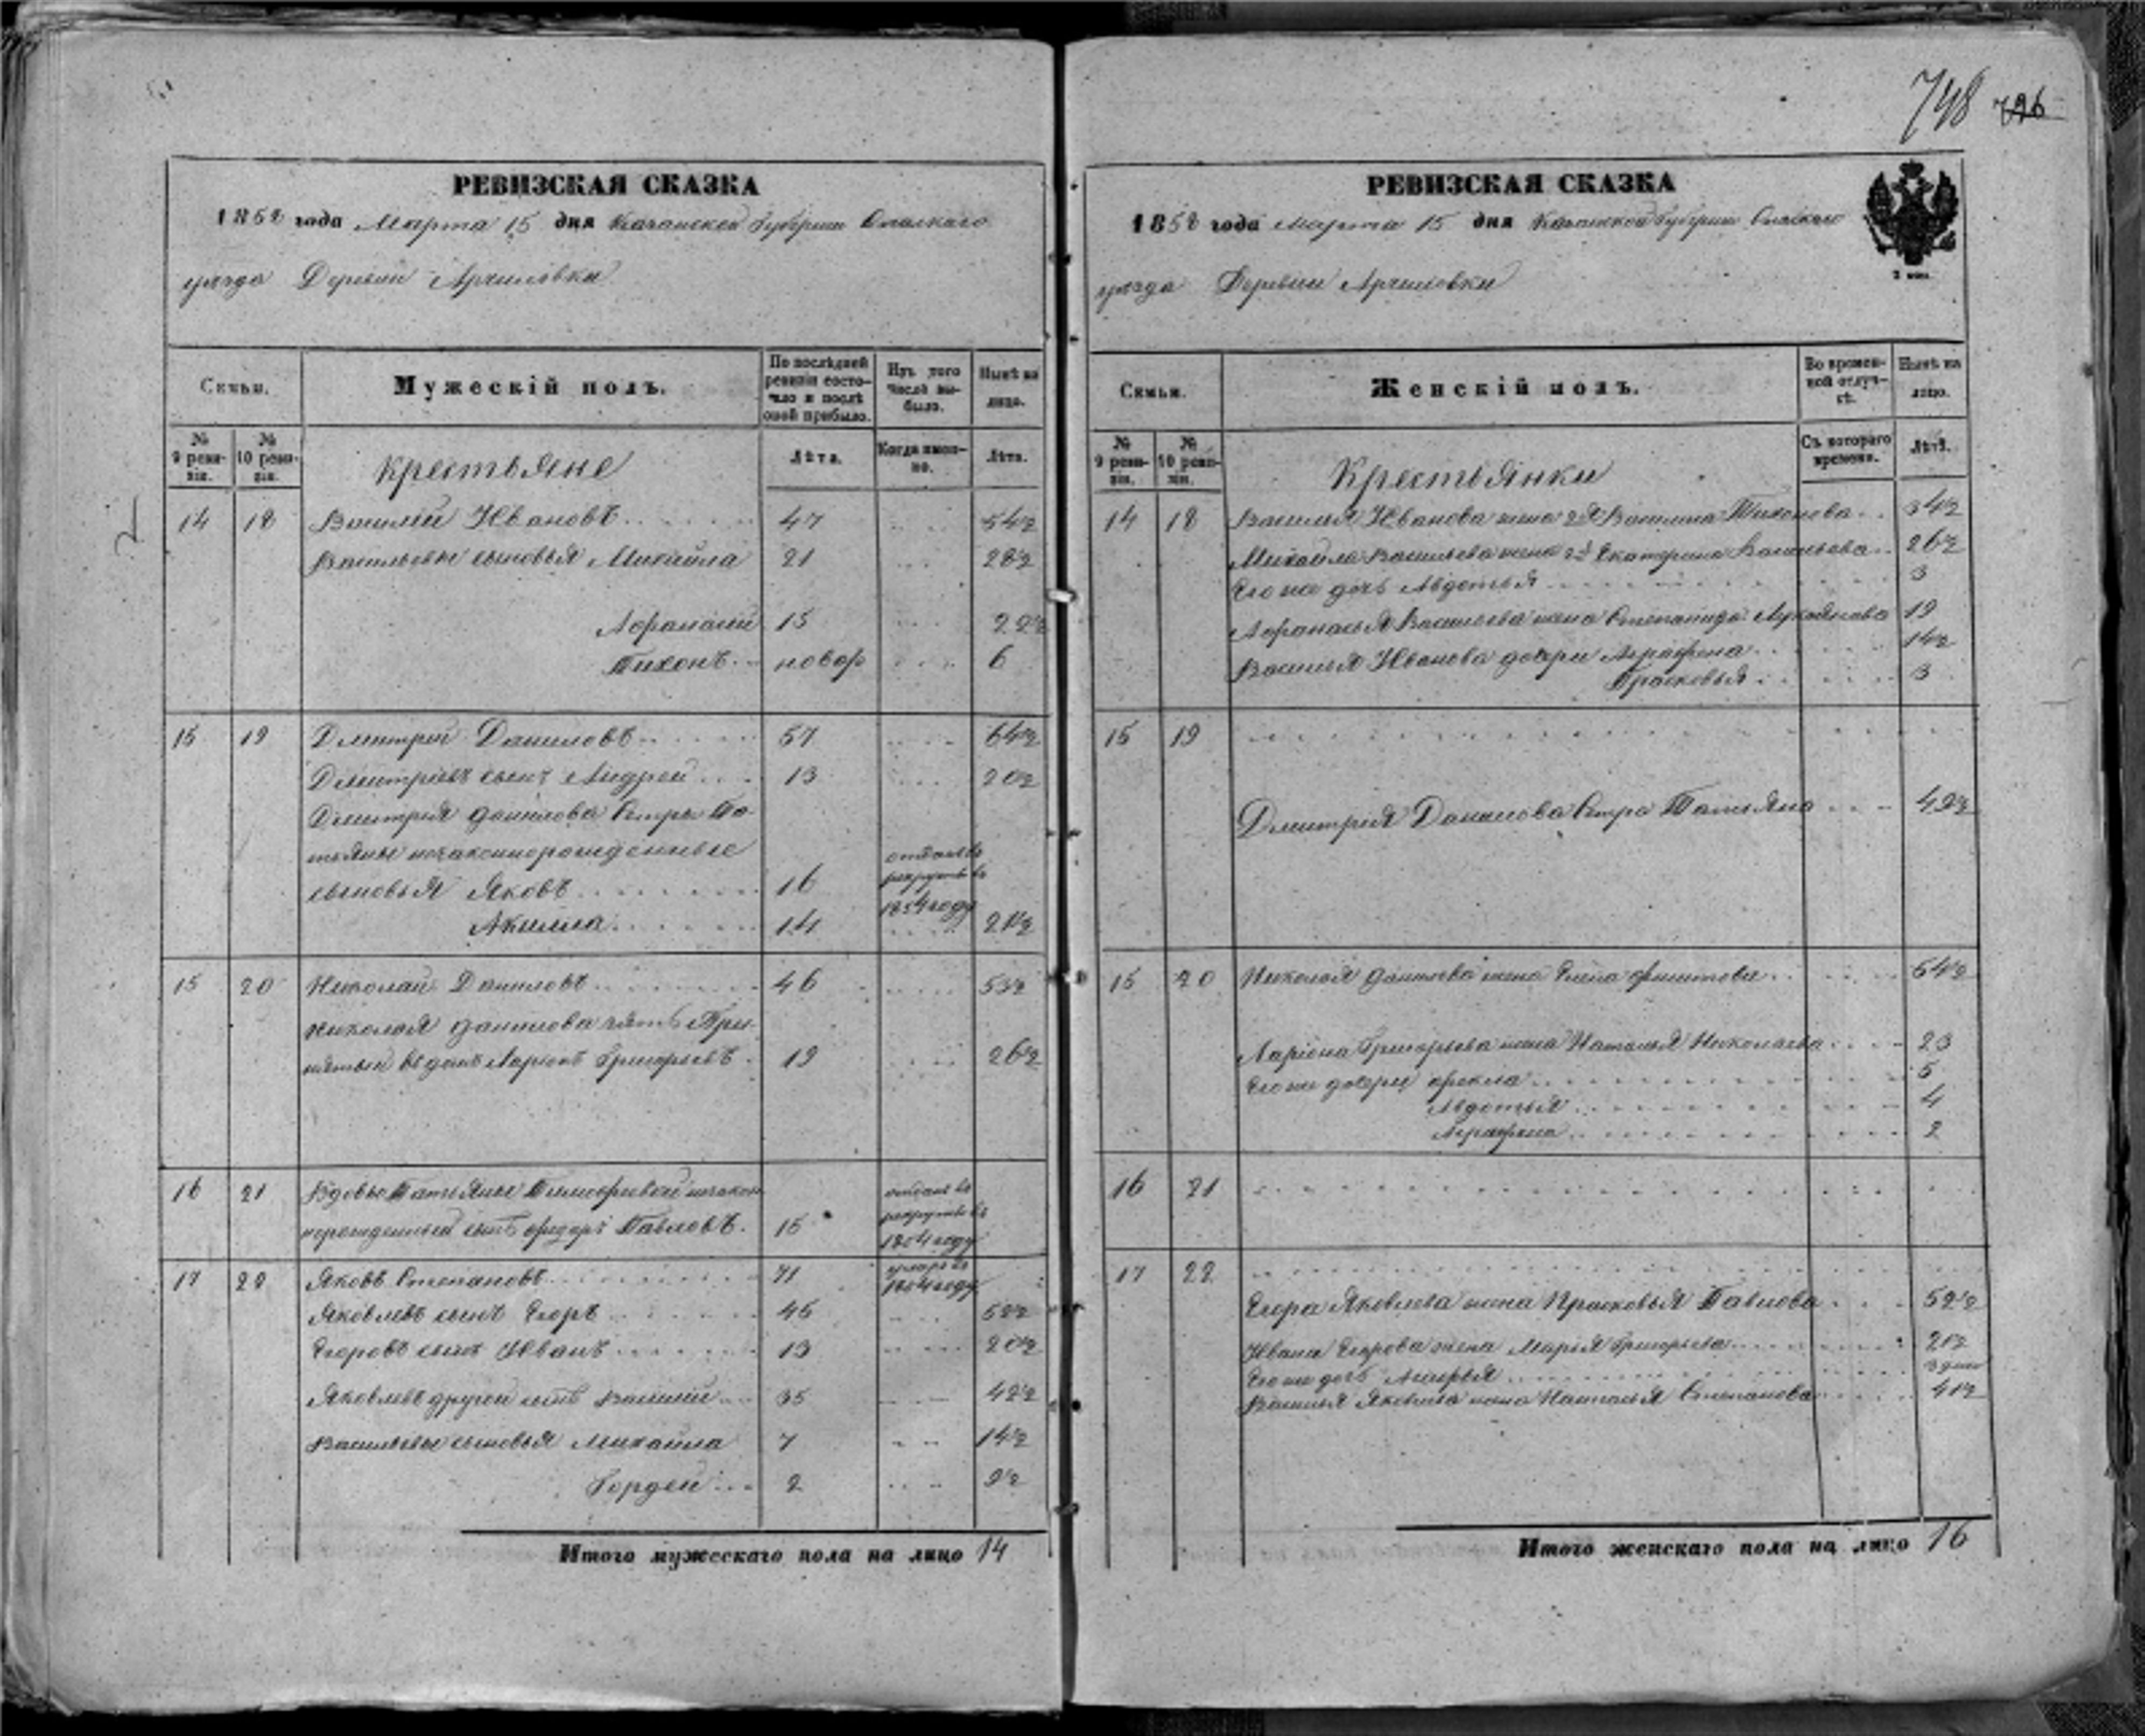 748 726
РЕВИЗСКАЯ СКАЗКА
1858 года Марта 15 дня Казанской Губернии Спасского
уезда Деревни
Семьи.
Мужескій полъ.
По послѣдней ревизіи состояло и послѣ оной прибыло.
Изъ того числа выбыло.
Нынѣ на лицо.
№ 9 ревизіи.
№ 10 ревизіи.
Крестьяне
Лѣта.
Когда именно.
Лѣта.
14 18 Василий Ивановъ 47 54½
Васильевы сыновья Михайла 21 28½
Афранасий 15 22½
Тихонъ новор 6
15 19 Дмитрий Даниловъ 57 64½
Дмитриевъ сынъ Андрей 13 20½
Дмитрия Данилова Сетры Та-
тьяны незаконнорожденные
сыновья Яковъ 16 отданъ въ рекруты въ 1854 году
Акилла 14 21½
15 20 Николай Даниловъ 46 53½
Николая Данилова зять При-
нятый въ домъ Ларионъ Григорьевъ 19 26½
16 21 Вдовы Татьяны Тимофеевой незакон
норожденный сынъ Федоръ Павловъ 15 отданъ въ рекруты въ 1854 году
17 22 Яковъ Степановъ 71 умеръ въ 1854 году
Яковлевъ сынъ Егоръ 45 52½
Егоровъ сынъ Иванъ 13 20½
Яковлевъ другой сынъ Василий 35 42½
Васильевы сыновья Михайла 7 14½
Гордей 2 9½
Итого мужескаго пола на лицо 14
РЕВИЗСКАЯ СКАЗКА
1858 года Марта 15 дня Казанской Губернии Спасского
уезда Деревни
Семьи.
Женскій полъ.
Во временной отлучкѣ.
Нынѣ на лицо.
№ 9 ревизіи.
№ 10 ревизіи.
Крестьянки
Съ котораго времени.
Лѣта.
14 18 Василья Иванова жена 2я Тихонова 34½
Михайла Васильева жена Екатерина Васильева 26½
Его же дочь Авдотья 3
Афранасья Васильева жена Степанида Лукоянова 19
Василья Иванова дочери Аграфена 14½
Прасковья 3
15 19
Дмитрия Данилова Сетра Татьяна 49½
15 20 Николая Данилова жена Елена 54½
Лариона Григорьева жена Наталья Николаева 23
Его же дочери Фекла 5
Авдотья 4
Аграфена 2
16 21
17 22
Егора Яковлева жена Прасковья Павлова 52½
Ивана Егорова жена Марья Григорьева 21½
Его же дочь 3 дни
Василья Яковлева жена Наталья Степанова 41½
Итого женскаго пола на лицо 16